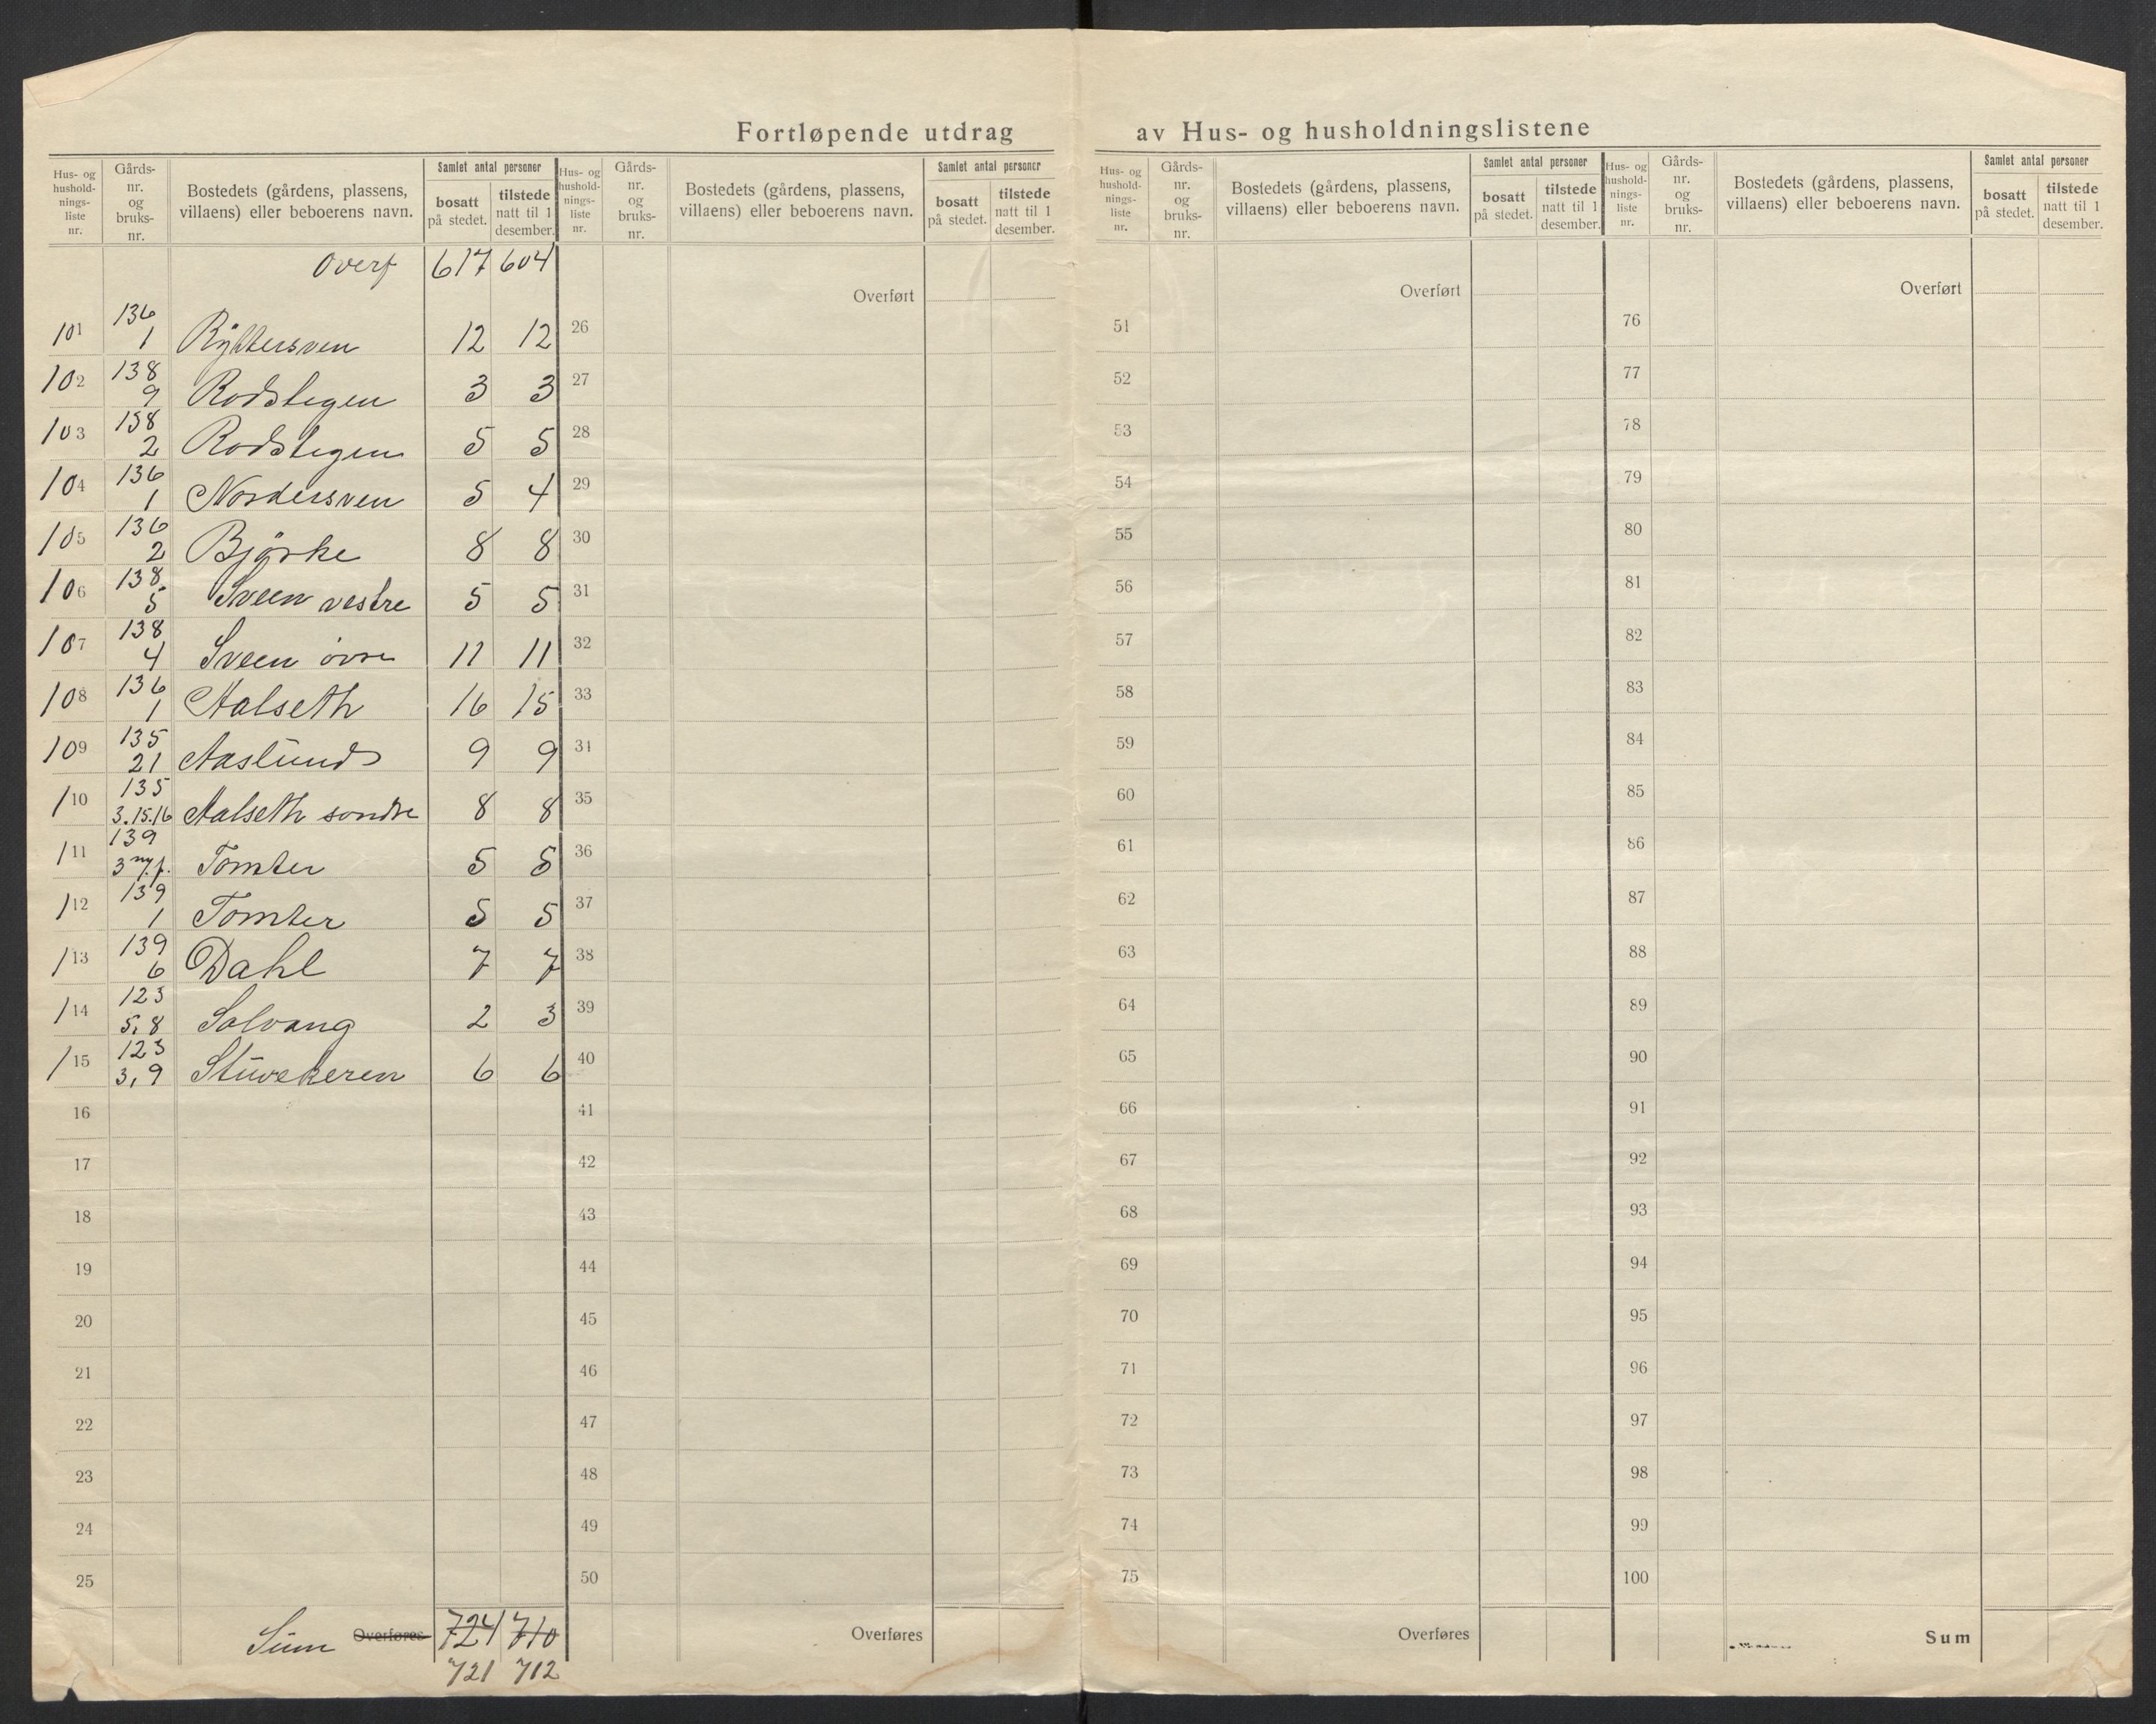 Fortløpende utdrag av Hus- og husholdningslistene
Hus- og hushold-nings-liste nr. | Gårds-nr. og bruks-nr. | Bostedets (gårdens, plassens, villaens) eller beboerens navn. | Samlet antal personer | bosatt på stedet. | tilstede natt til 1 desember.
Overf 617 604
101 136 1 12 12
102 138 9 Rodstegen 3 3
103 138 2 Rodstegen 5 5
104 136 1 Nordersven 5 4
105 136 2 Bjørke 8 8
106 138 5 Sveen vestre 5 5
107 138 4 Sveen övre 11 11
108 136 1 Aalseth 16 15
109 135 21 Aaslund 9 9
110 135 3.15.16 Aalseth søndre 8 8
111 139 3 Tomter 5 5
112 139 1 Tomter 5 5
113 139 6 Dahl 7 7
114 123 5,8 Solvang 2 3
115 123 3,9 6 6
16
17
18
19
20
21
22
23
24
25
Sum Overføres 724 710
721 712
Hus- og hushold-nings-liste nr. | Gårds-nr. og bruks-nr. | Bostedets (gårdens, plassens, villaens) eller beboerens navn. | Samlet antal personer | bosatt på stedet. | tilstede natt til 1 desember.
Overført
26
27
28
29
30
31
32
33
34
35
36
37
38
39
40
41
42
43
44
45
46
47
48
49
50
Overføres
Hus- og hushold-nings-liste nr. | Gårds-nr. og bruks-nr. | Bostedets (gårdens, plassens, villaens) eller beboerens navn. | Samlet antal personer | bosatt på stedet. | tilstede natt til 1 desember.
Overført
51
52
53
54
55
56
57
58
59
60
61
62
63
64
65
66
67
68
69
70
71
72
73
74
75
Overføres
Hus- og hushold-nings-liste nr. | Gårds-nr. og bruks-nr. | Bostedets (gårdens, plassens, villaens) eller beboerens navn. | Samlet antal personer | bosatt på stedet. | tilstede natt til 1 desember.
Overført
76
77
78
79
80
81
82
83
84
85
86
87
88
89
90
91
92
93
94
95
96
97
98
99
100
Sum